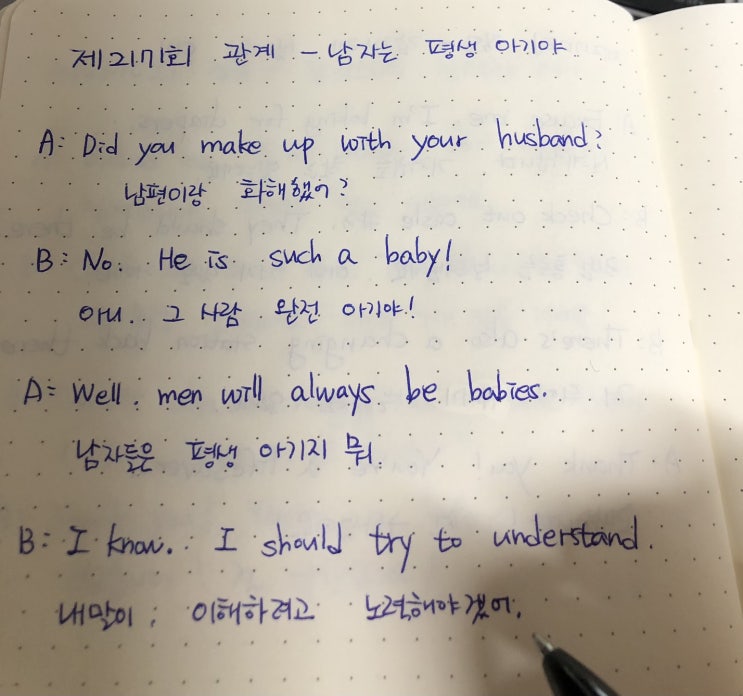 제2171회 관계 - 남자는 평생 아기야
A: Did you make up with your husband?
남편이랑 화해했어?
B: No. He is such a baby!
아니. 그 사람 완전 아기야!
A: Well. men will always be babies.
남자들은 평생 아기지 뭐.
B: I know. I should try to understand.
내말이. 이해하려고 노력해야겠어.